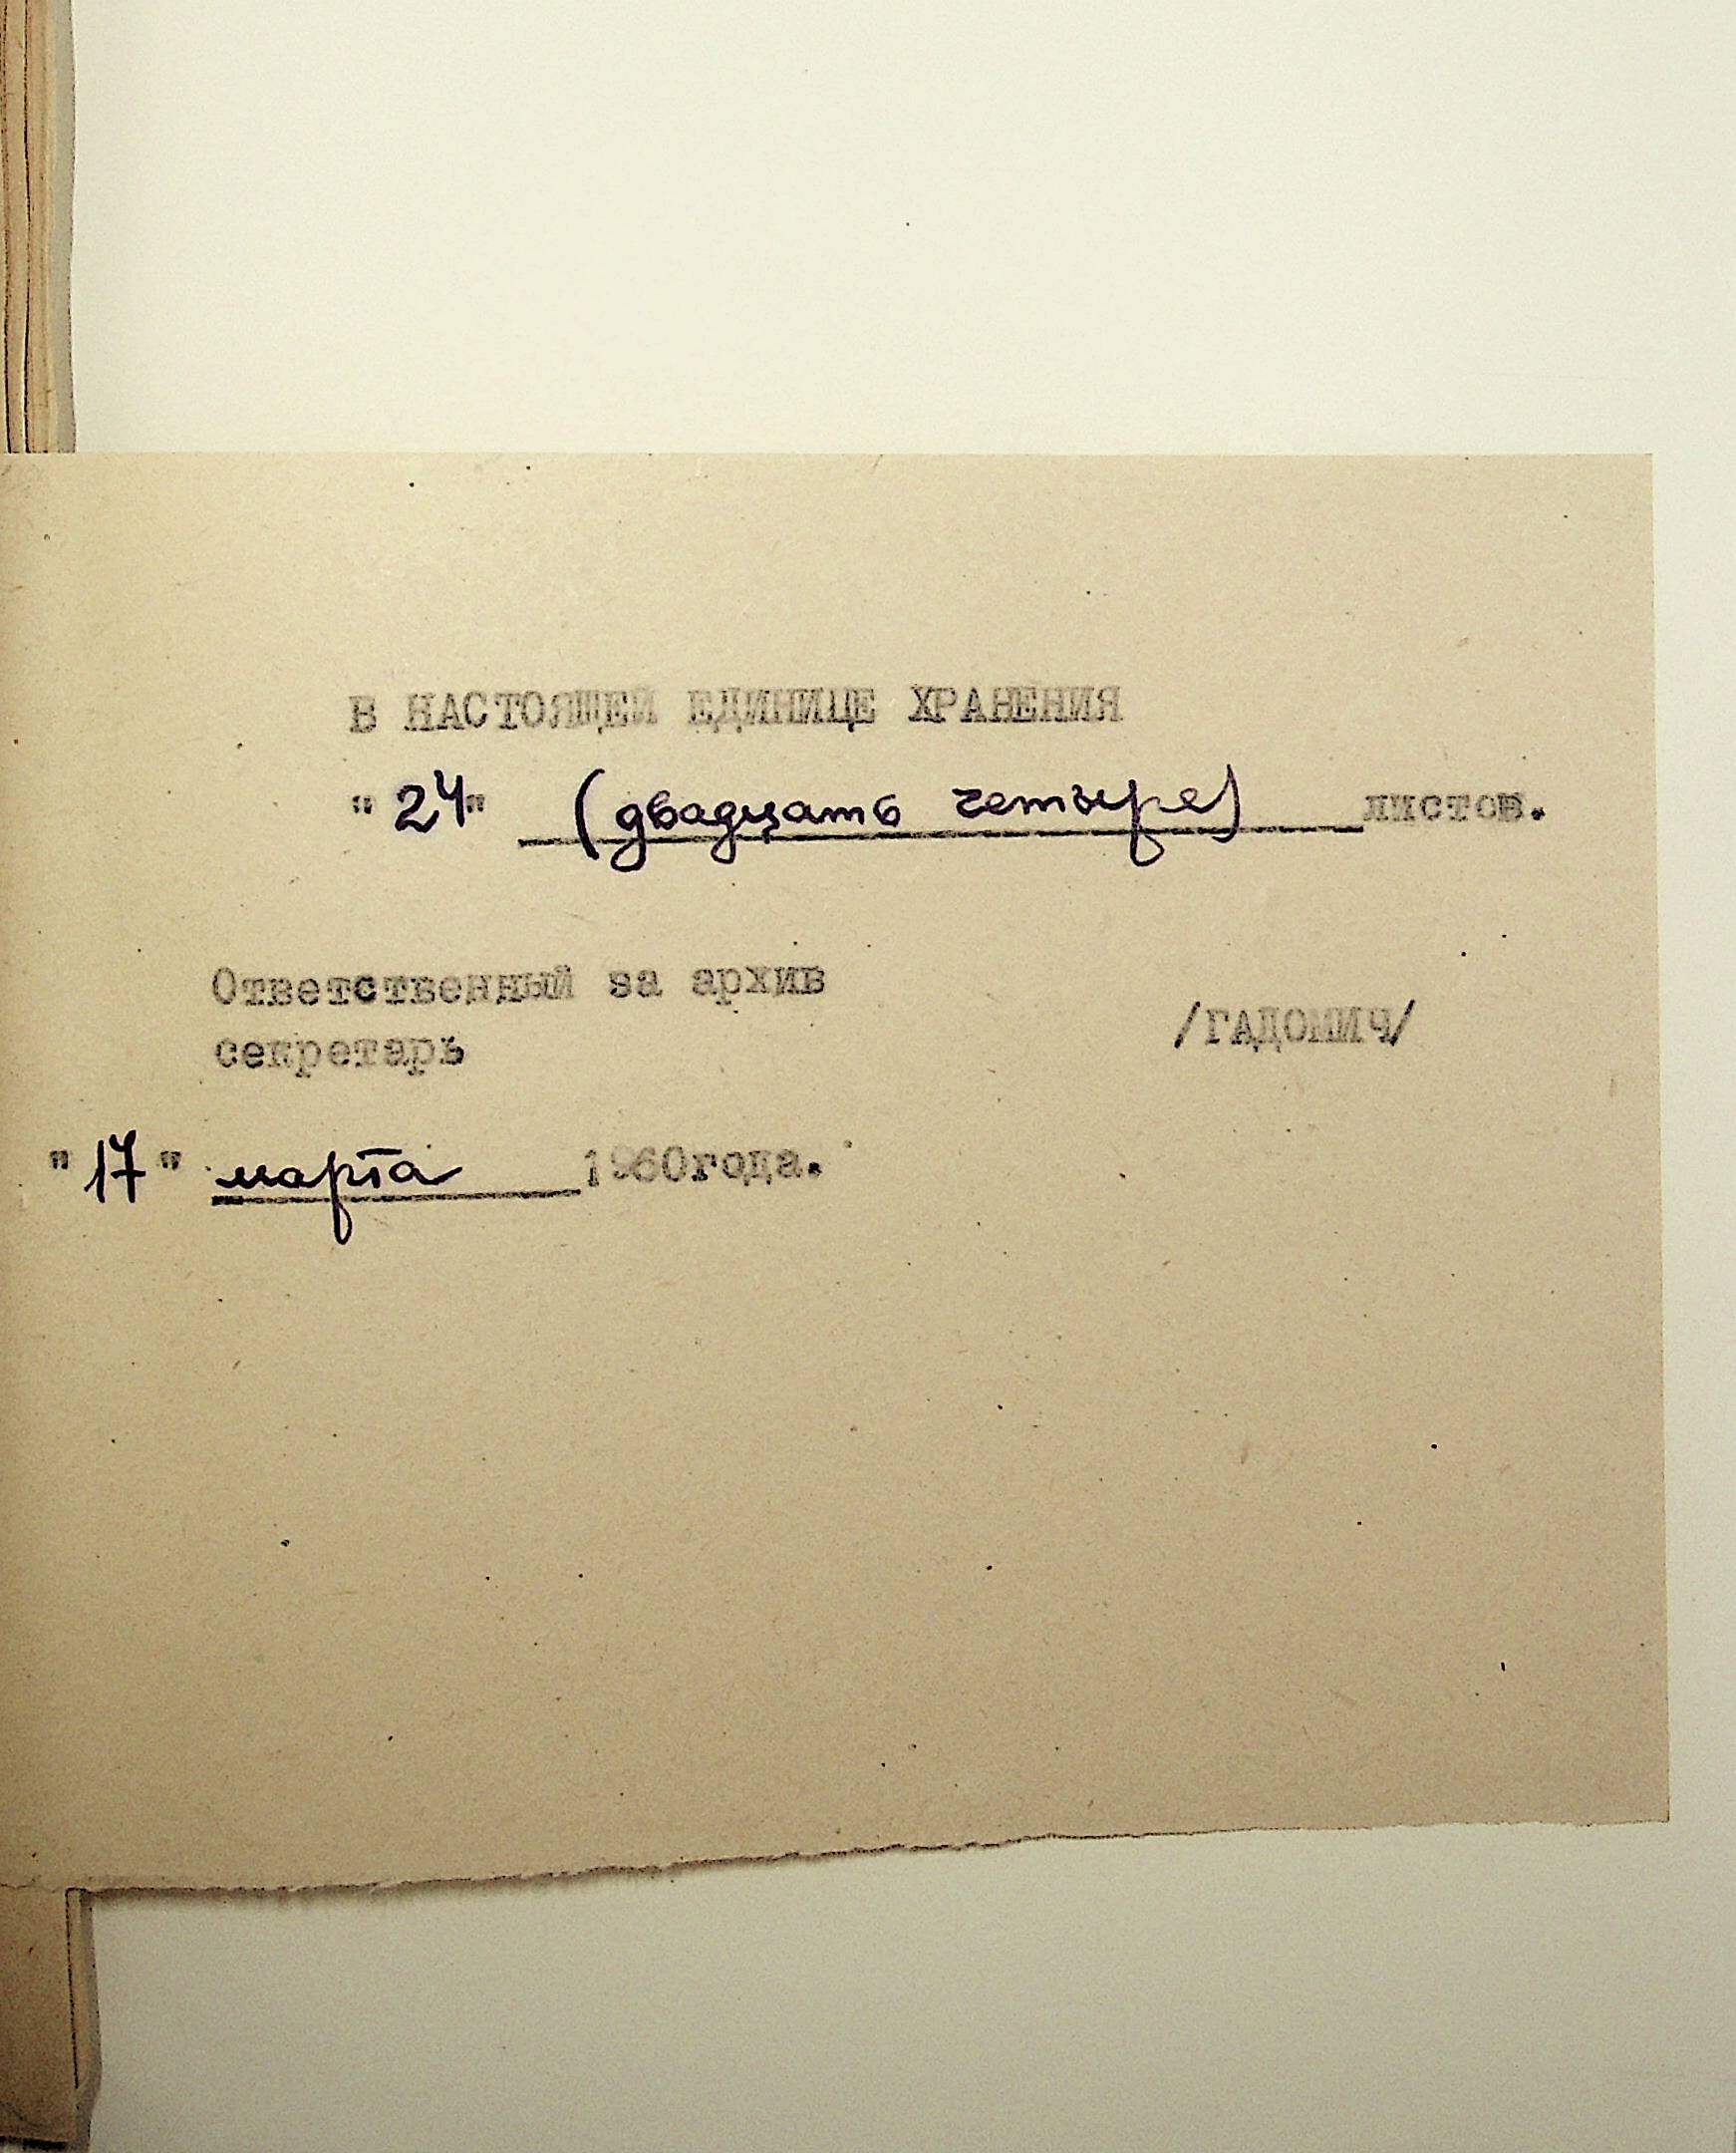 В НАСТОЯЩЕЙ ЕДИНИЦЕ ХРАНЕНИЯ
"24" (двадцать четыре) листов.
Ответственный за архив
секретарь /ГАДОМИЧ/
"17" марта 1960года.